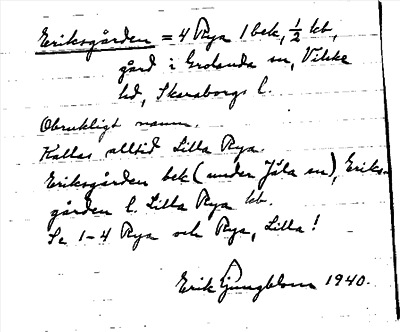 Eriksgården = 4 Rya 1 bek, ½ kb,
gård i Grolanda sn, Vilske
hd, Skaraborgs l.
Obrukligt namn.
Kallas alltid Lilla Rya.
Eriksgården bek (under Jäla sn), Eriks-
gården l. Lilla Rya kb.
Se 1-4 Rya och Rya, Lilla!
Erik Ljungblom 1940.